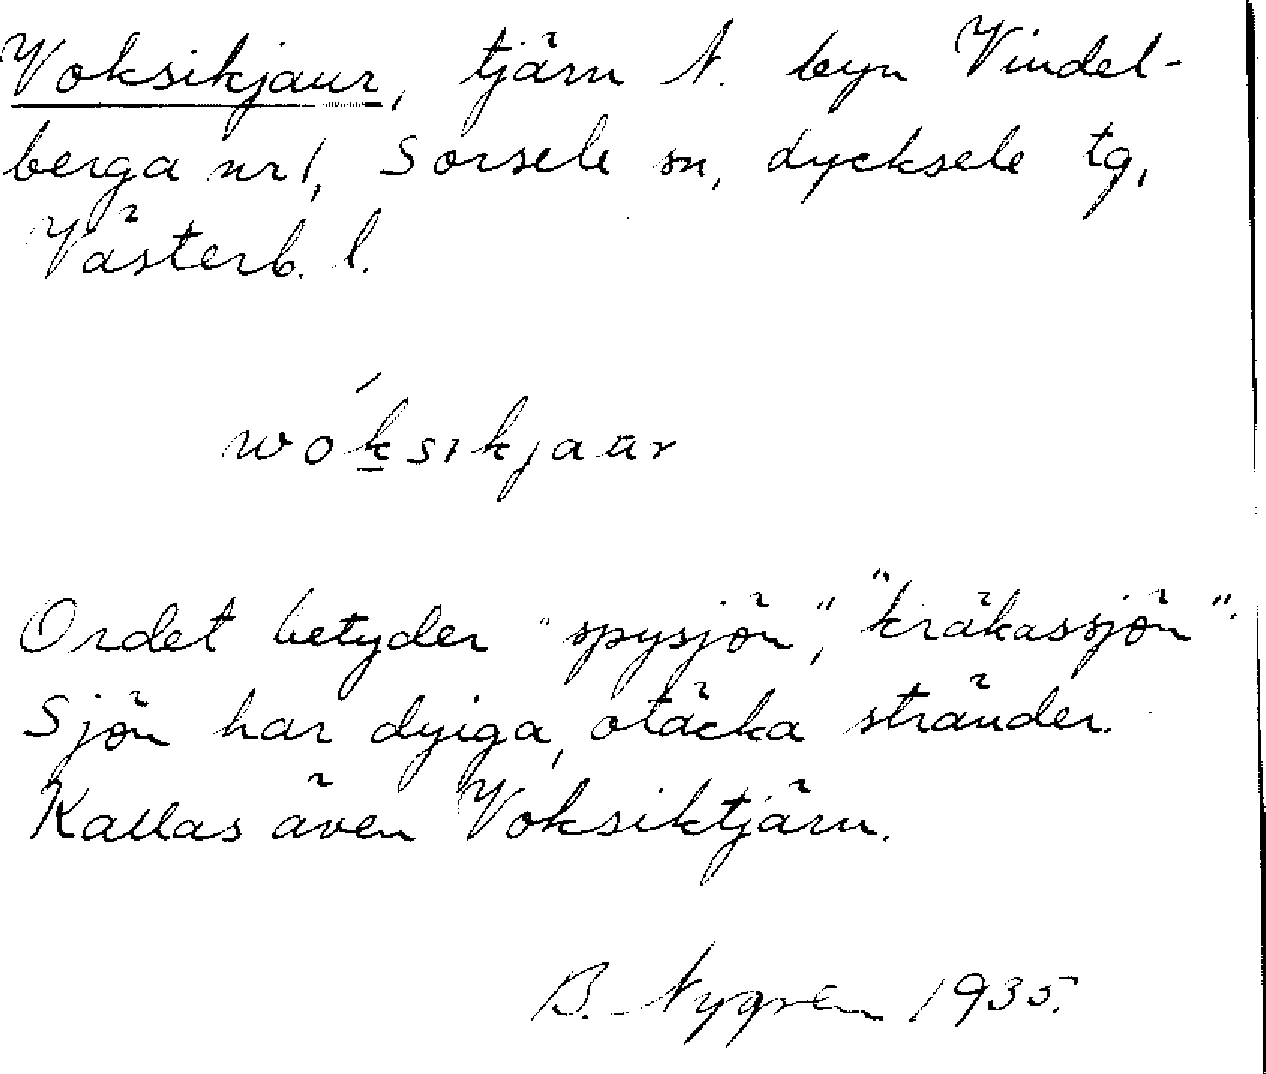 Voksikjaur, tjärn N. byn Vindel-
berga nr 1, Sorsele sn, Lycksele tg,
Västerb. l.
wóksikjaur
Ordet betyder "spysjön", "kräkassjön".
Sjön har dyiga, otäcka stränder.
Kallas även Voksiktjärn.
B. Nygren 1935.